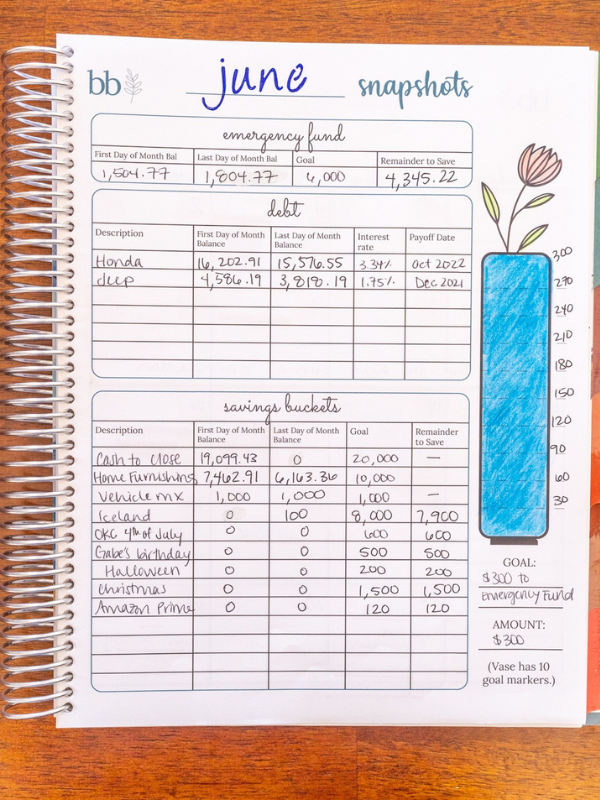 bb june snapshots
emergency fund
First Day of Month Bal Last Day of Month Bal Goal Remainder to Save
1,504.77 1,804.77 6,000 4,345.22
debt
Description First Day of Month Balance Last Day of Month Balance Interest rate Payoff Date
Honda 16,202.91 15,576.55 3.34% Oct 2022
deep 4,586.19 3,818.19 1.75% Dec 2021
savings buckets
Description First Day of Month Balance Last Day of Month Balance Goal Remainder to Save
Cash to Close 19,099.43 0 20,000 —
Home Furnishing 7,462.91 6,163.36 10,000
Vehicle mx 1,000 1,000 1,000 —
Iceland 0 100 8,000 7,900
OKC 4th of July 0 0 600 600
Gabe's birthday 0 0 500 500
Halloween 0 0 200 200
Christmas 0 0 1,500 1,500
Amazon Prime 0 0 120 120
300
270
240
210
180
150
120
90
60
30
GOAL:
$300 to
Emergency Fund
AMOUNT:
$300
(Vase has 10
goal markers.)